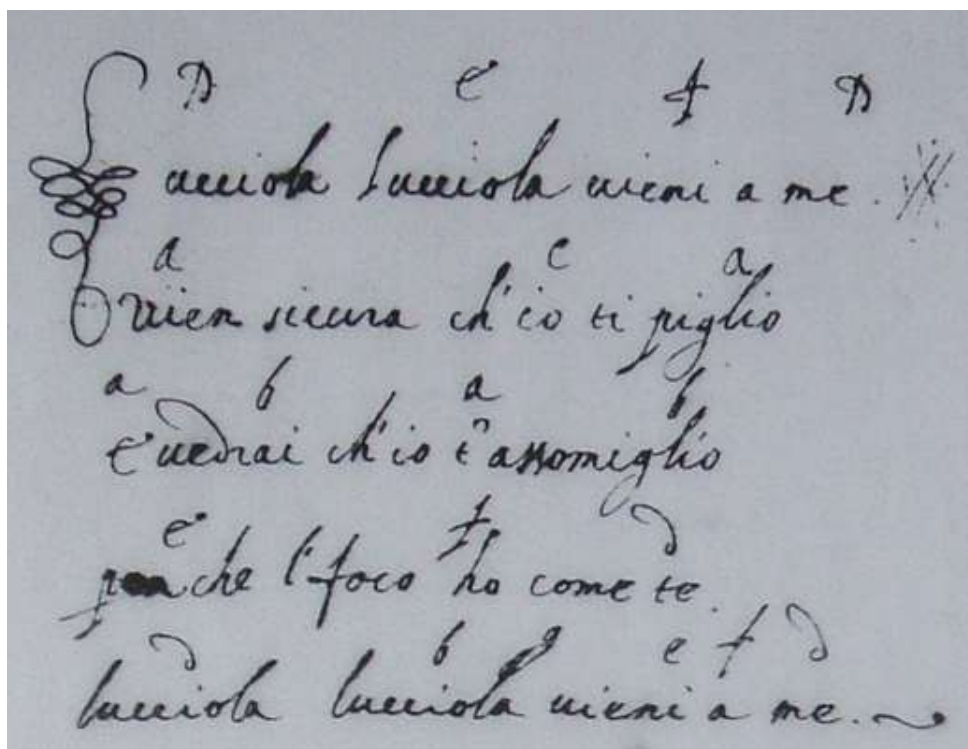 D e f D
Lucciola lucciola vieni a me.
a c a
vien sicura ch'io ti piglio
a b a b
E vedrai ch'io t'assomiglio
e f d
perche l'foco ho come te.
d b g e f d
lucciola lucciola vieni a me.